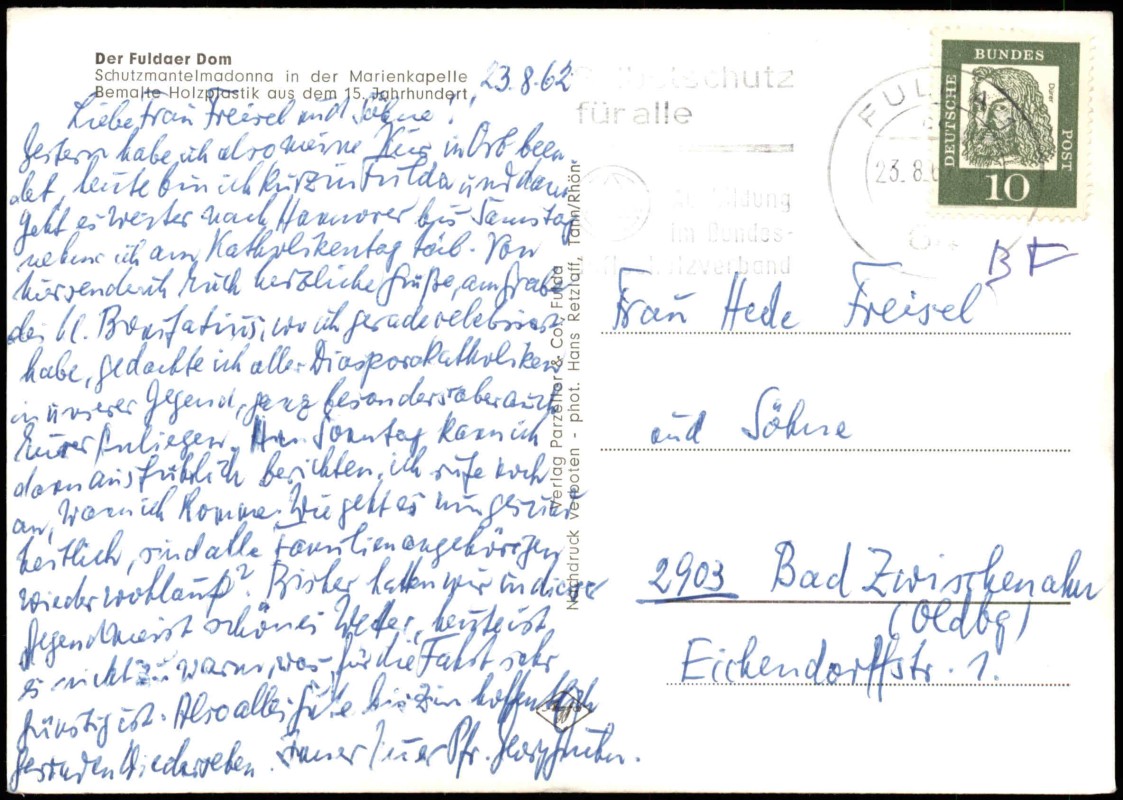 Der Fuldaer Dom
Schutzmantelmadonna in der Marienkapelle
Bemalte Holzplastik aus dem 15. Jahrhundert
23.8.62
Liebe Frau Freisel und Söhne!
Gestern habe ich also meine Kur in Orb been-
det, heute bin ich kurz in Fulda und dann
geht es weiter nach Hannover bis Samstag
nehme ich am Katholikentag teil. Von
hier sende ich Euch herzliche Grüße, am Grabe
des hl. Bonifatius, wo ich gerade celebriert
habe, gedachte ich aller Diasporakatholiken
in unserer Gegend, ganz besonders aber auch
Eurer Anliegen. Am Sonntag kann ich
dann ausführlich berichten, ich rufe noch
an, wann ich komme. Wie geht es nun gesund-
heitlich, sind alle Familienangehörigen
wieder wohlauf? Bisher hatten wir in dieser
Gegend meist schönes Wetter, heute ist
es nicht zu warm, was für die Fahrt sehr
günstig ist. Also alles Gute bis zum hoffentlich
gesunden Wiedersehen. Immer Euer Pfr.
Verlag Parzeller & Co., Fulda
Nachdruck verboten - phot. Hans Retzlaff, Tann/Rhön
Selbstschutz
für alle
Ausbildung
im Bundes-
luftschutzverband
FULDA
23.8.6
DEUTSCHE BUNDES POST
Dürer
10
Frau Hede Freisel
und Söhne
2903 Bad Zwischenahn
(Oldbg)
Eichendorffstr. 1.